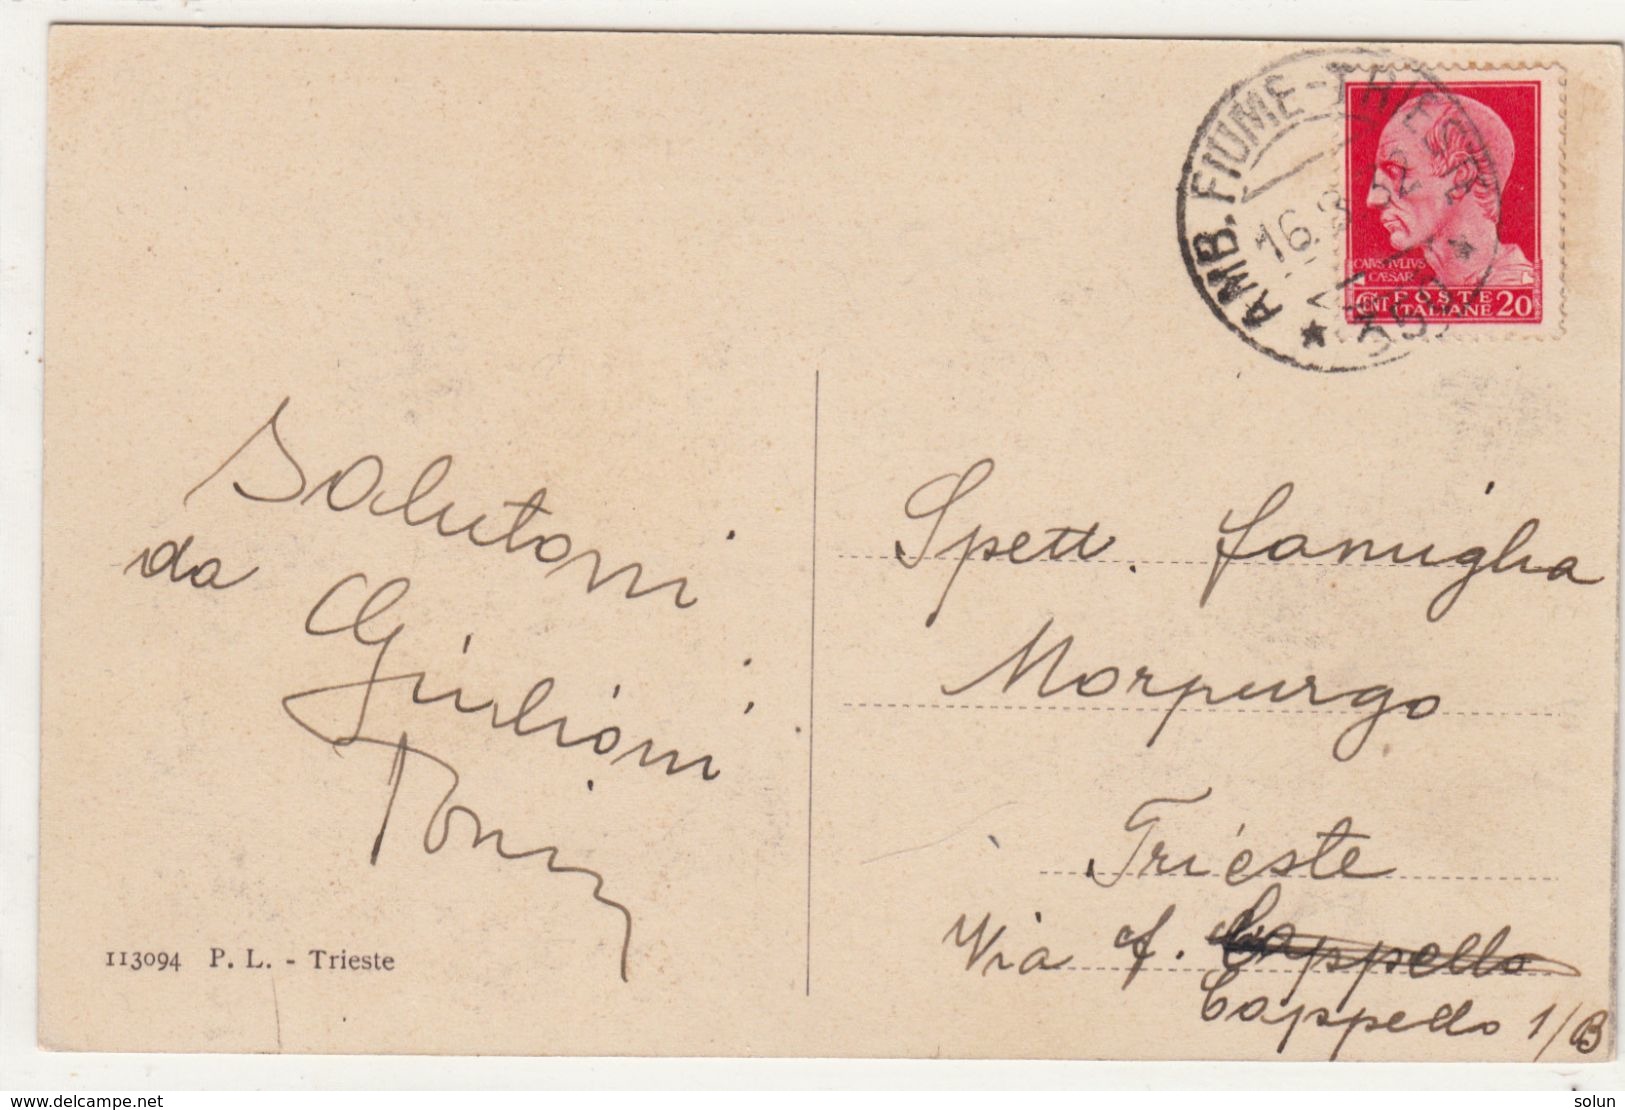 AMB. FIUME-TRIESTE
16.3.32
CAIVS IVLIVS
CÆSAR
CENT POSTE ITALIANE 20
Salutoni
da Giulioni
Spett. famiglia
Morpurgo
Trieste
Via F. Cappello
Cappello 1/B
113094 P. L. - Trieste
www.delcampe.net
solun